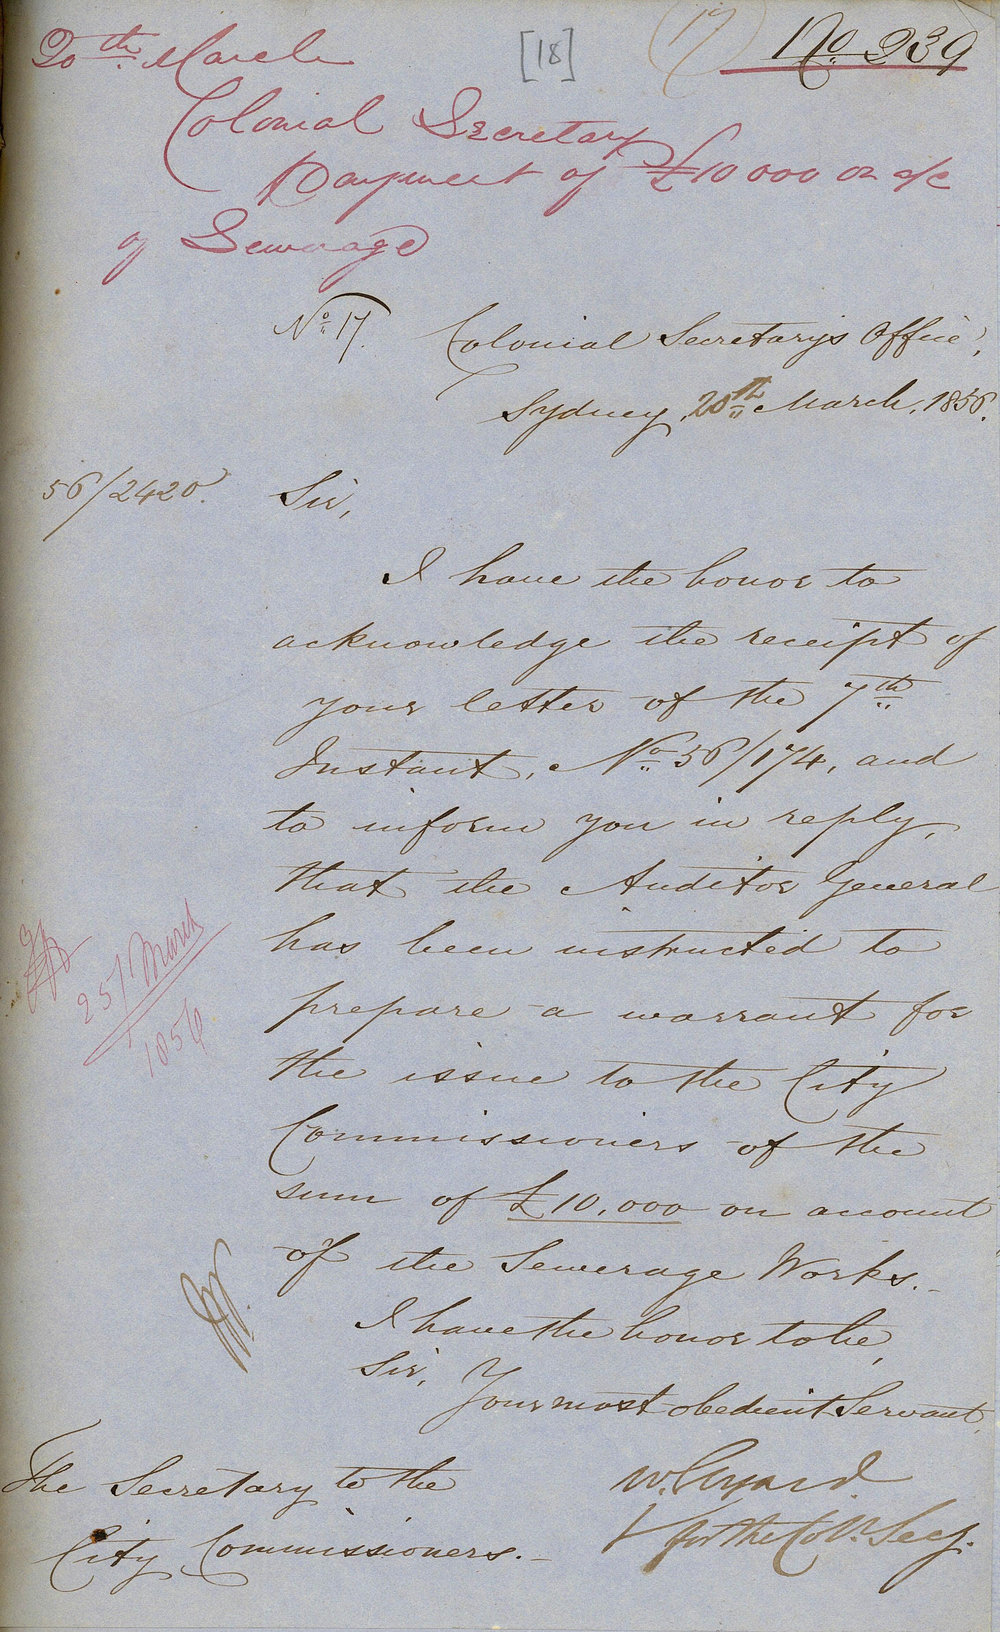 20th March
[18]
17
No. 239
Colonial Secretary
Payment of £10000 on a/c
of Sewerage
No. 17.
Colonial Secretary's Office,
Sydney, 20th March, 1856.
56/2420.
Sir,
I have the honor to
acknowledge the receipt of
your letter of the 7th
Instant, No. 56/174, and
to inform you in reply,
that the Auditor General
has been instructed to
prepare a warrant for
the issue to the City
Commissioners of the
sum of £10,000 on account
of the Sewerage Works.
25/March
1856
I have the honor to be,
Sir,
Your most obedient Servant,
W. Elyard
for the Col. Secy.
The Secretary to the
City Commissioners.